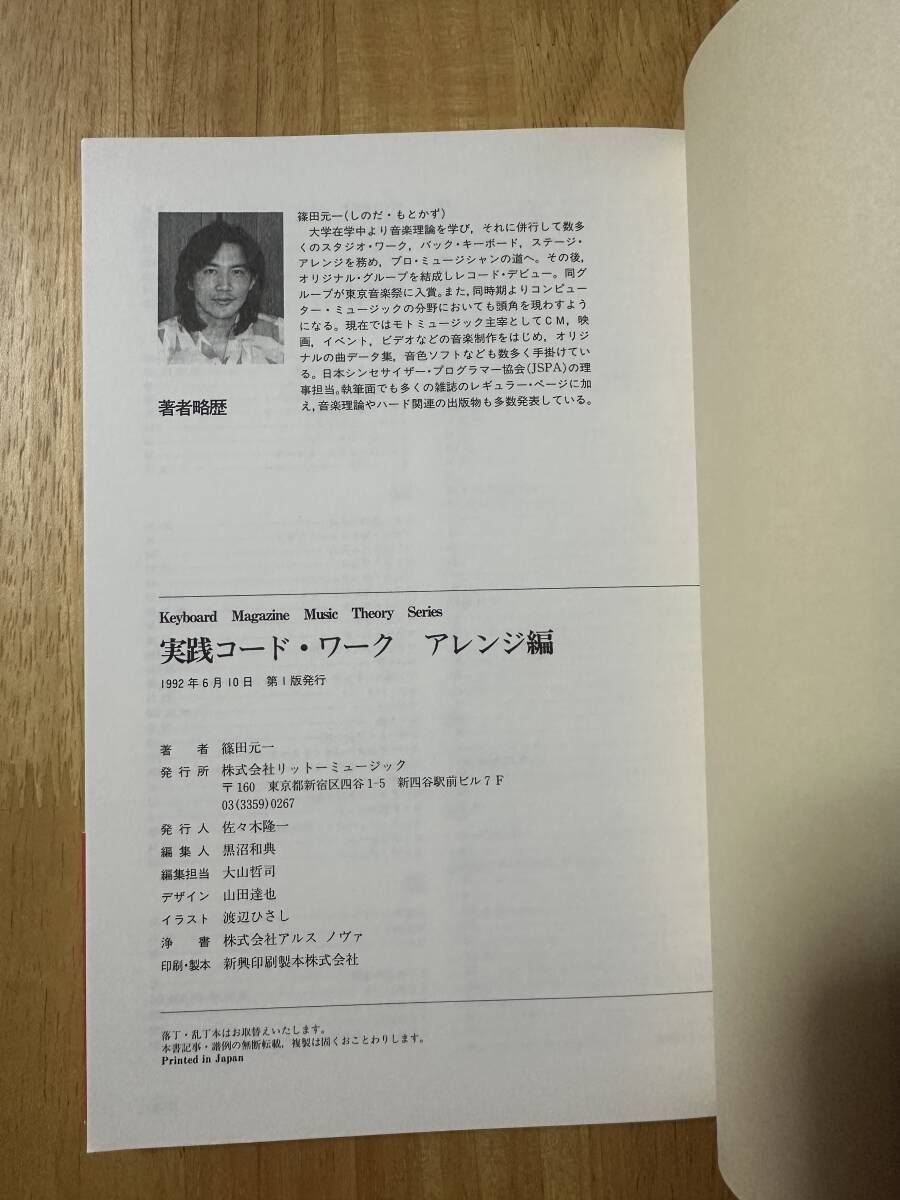 篠田元一(しのだ・もとかず)
大学在学中より音楽理論を学び,それに併行して数多
くのスタジオ・ワーク,バック・キーボード,ステージ・
アレンジを務め,プロ・ミュージシャンの道へ。その後,
オリジナル・グループを結成しレコード・デビュー。同グ
ループが東京音楽祭に入賞。また,同時期よりコンピュー
ター・ミュージックの分野においても頭角を現わすよう
になる。現在ではモトミュージック主宰としてCM,映
画,イベント,ビデオなどの音楽制作をはじめ,オリジ
ナルの曲データ集,音色ソフトなども数多く手掛けてい
る。日本シンセサイザー・プログラマー協会(JSPA)の理
事担当。執筆面でも多くの雑誌のレギュラー・ページに加
え,音楽理論やハード関連の出版物も多数発表している。
著者略歴
Keyboard Magazine Music Theory Series
実践コード・ワーク アレンジ編
1992年6月10日 第1版発行
著者 篠田元一
発行所 株式会社リットーミュージック
〒160 東京都新宿区四谷1-5 新四谷駅前ビル7F
03(3359)0267
発行人 佐々木隆一
編集人 黒沼和典
編集担当 大山哲司
デザイン 山田達也
イラスト 渡辺ひさし
浄書 株式会社アルス ノヴァ
印刷・製本 新興印刷製本株式会社
落丁・乱丁本はお取替えいたします。
本書記事・譜例の無断転載,複製は固くおことわりします。
Printed in Japan